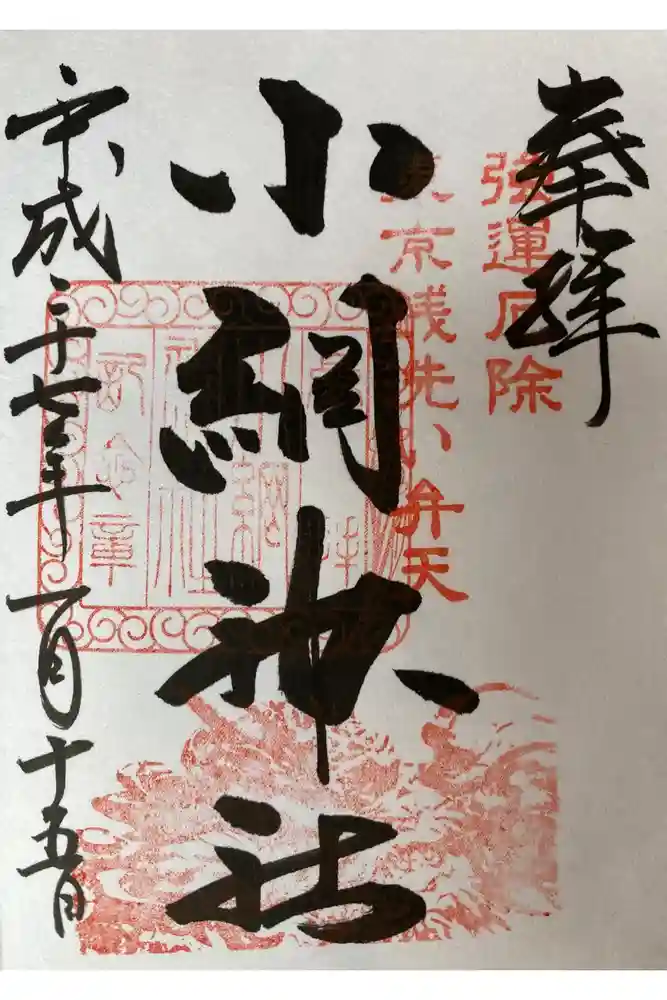 奉拝
強運厄除
東京銭洗い弁天
小網神社
平成二十七年一月十五日